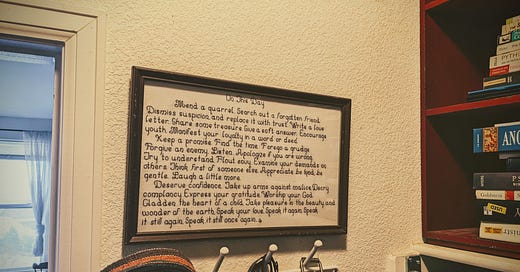 On This Day
Mend a quarrel. Search out a forgotten friend.
Dismiss suspicion, and replace it with trust. Write a love
letter. Share some treasure. Give a soft answer. Encourage
youth. Manifest your loyalty in a word or deed.
Keep a promise. Find the time. Forego a grudge.
Forgive an enemy. Listen. Apologize if you are wrong.
Try to understand. Flout envy. Examine your demands on
others. Think first of someone else. Appreciate, be kind, be
gentle. Laugh a little more.
Deserve confidence. Take up arms against malice. Decry
complancy. Express your gratitude. Worship your God.
Gladden the heart of a child. Take pleasure in the beauty and
wonder of the earth. Speak your love. Speak it again. Speak
it still again. Speak it still once again.
PYTH
ANO